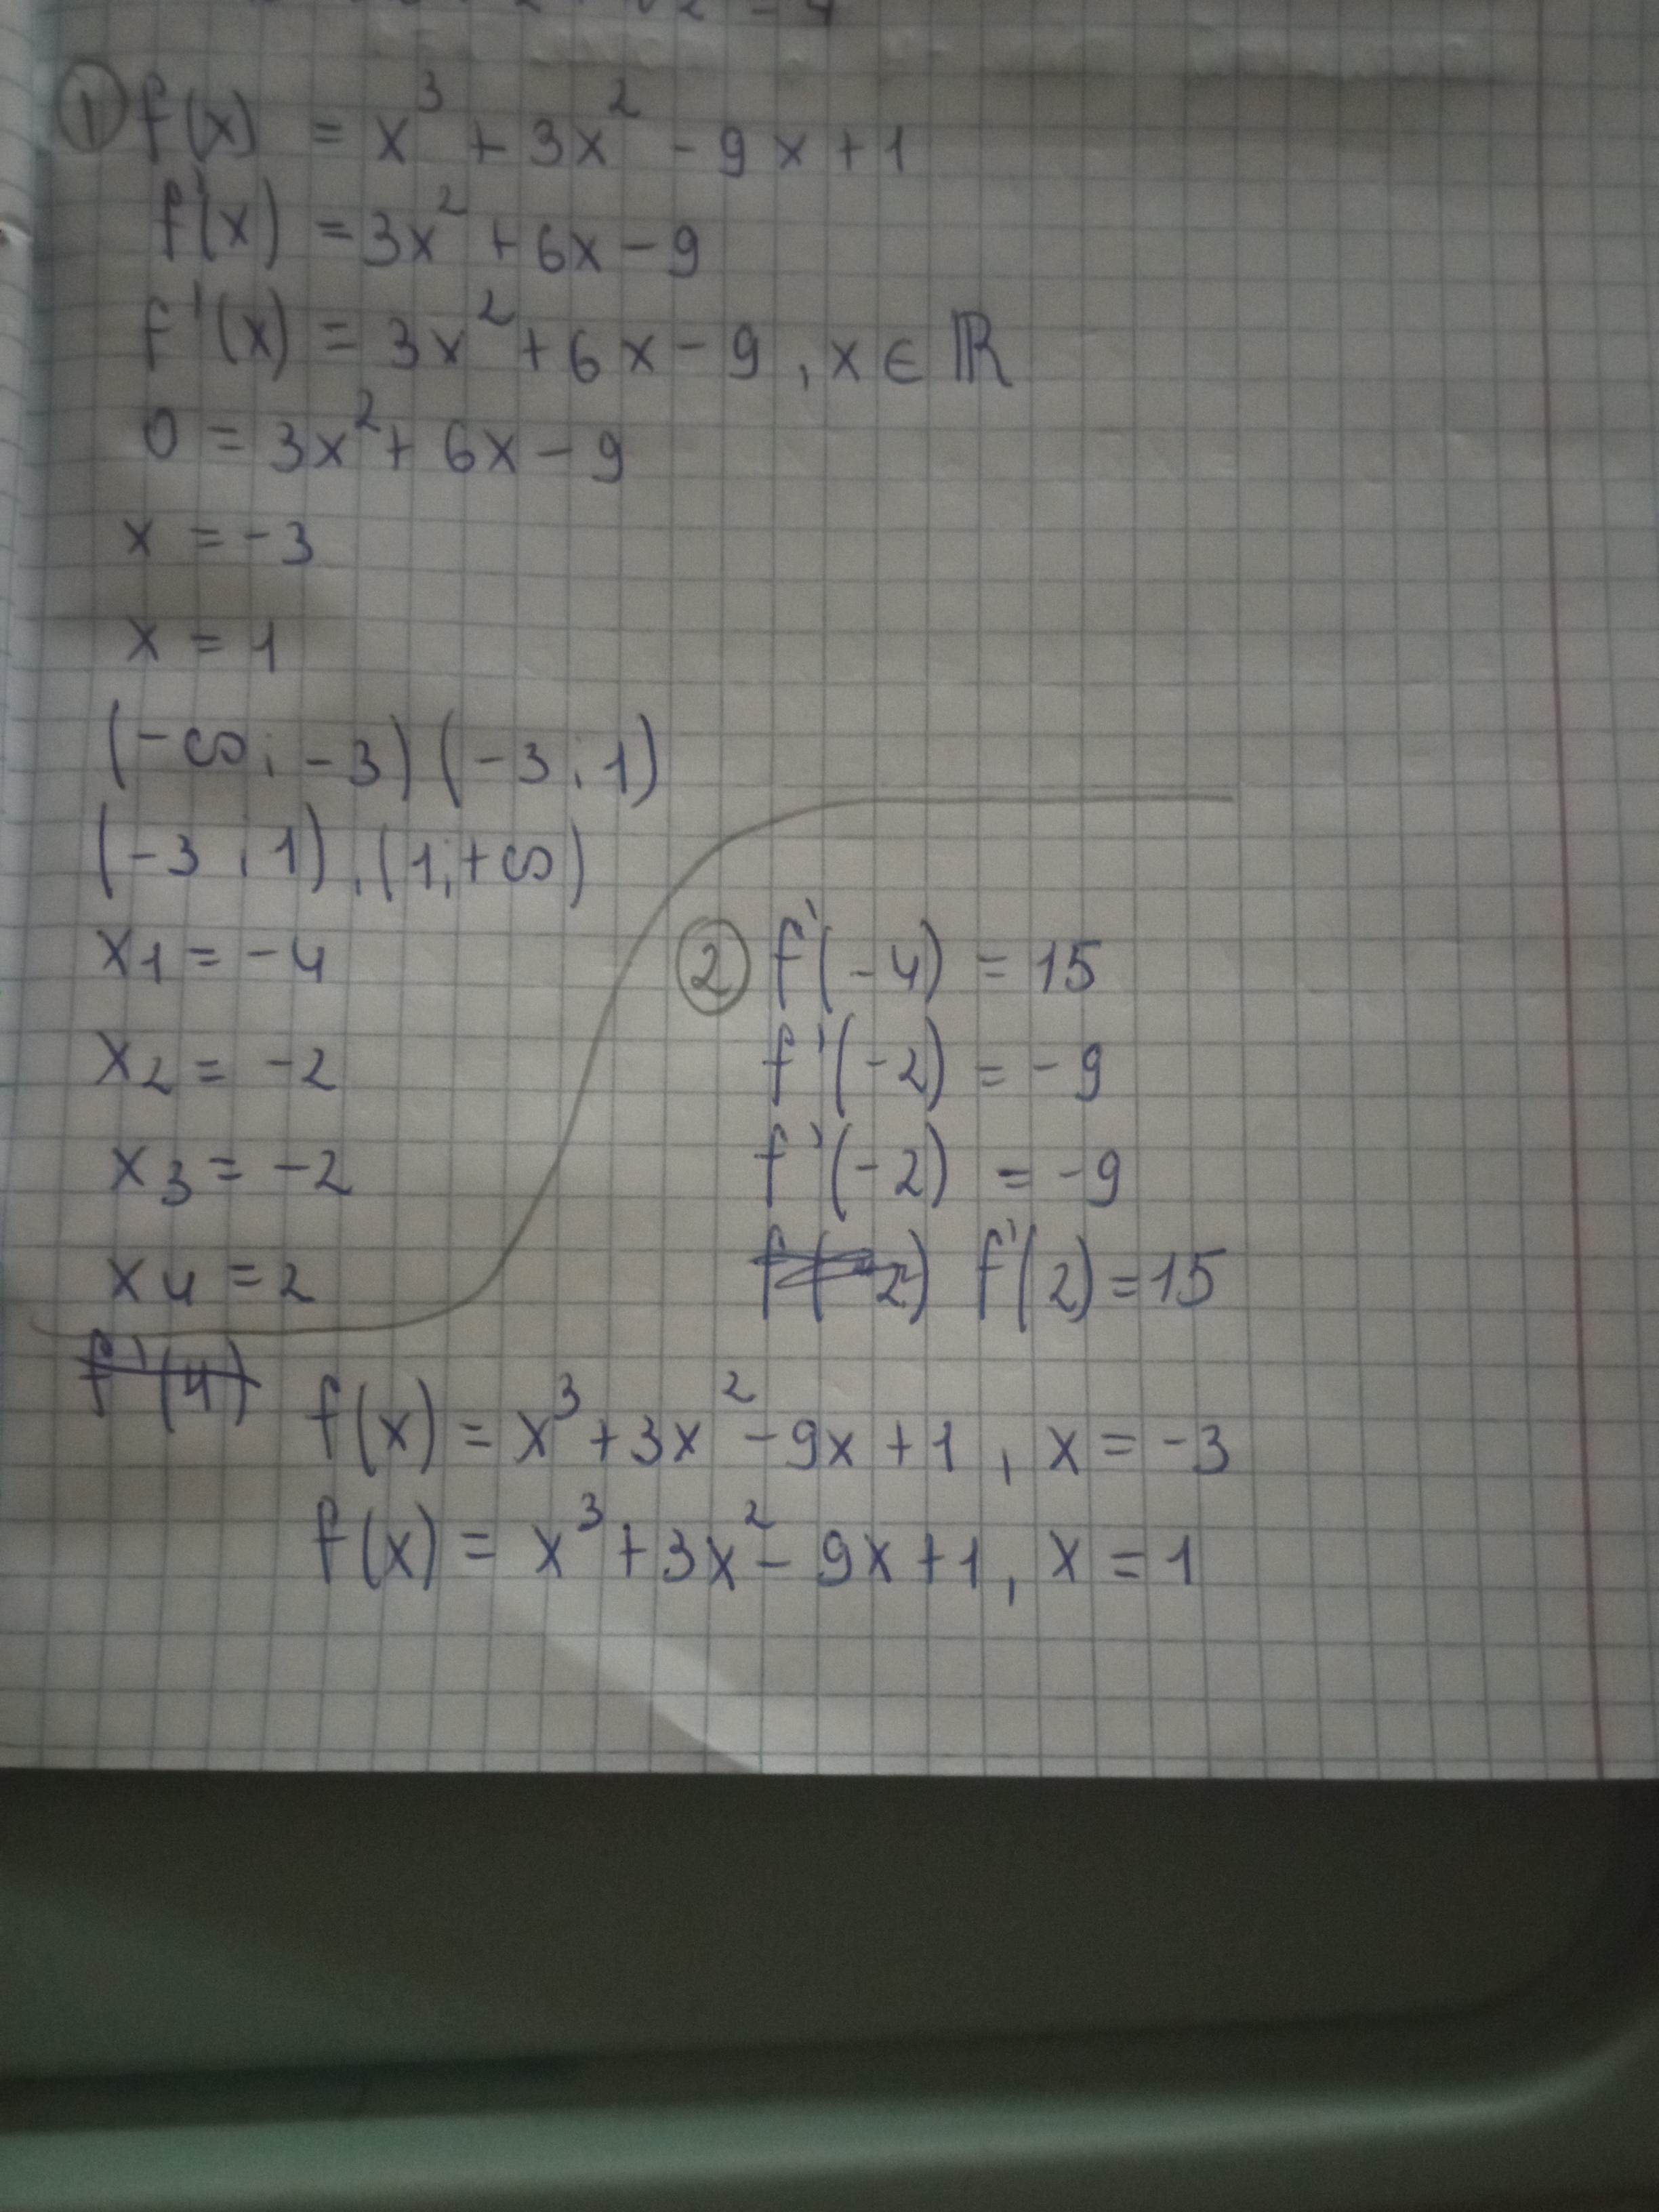 ① f(x) = x³ + 3x² - 9x + 1
f'(x) = 3x² + 6x - 9
f'(x) = 3x² + 6x - 9, x ∈ ℝ
0 = 3x² + 6x - 9
x = -3
x = 1
(-∞; -3) (-3; 1)
(-3; 1), (1; +∞)
x1 = -4
x2 = -2
x3 = -2
x4 = 2
② f'(-4) = 15
f'(-2) = -9
f'(-2) = -9
f'(2) = 15
f'(4)
f(x) = x³ + 3x² - 9x + 1, x = -3
f(x) = x³ + 3x² - 9x + 1, x = 1